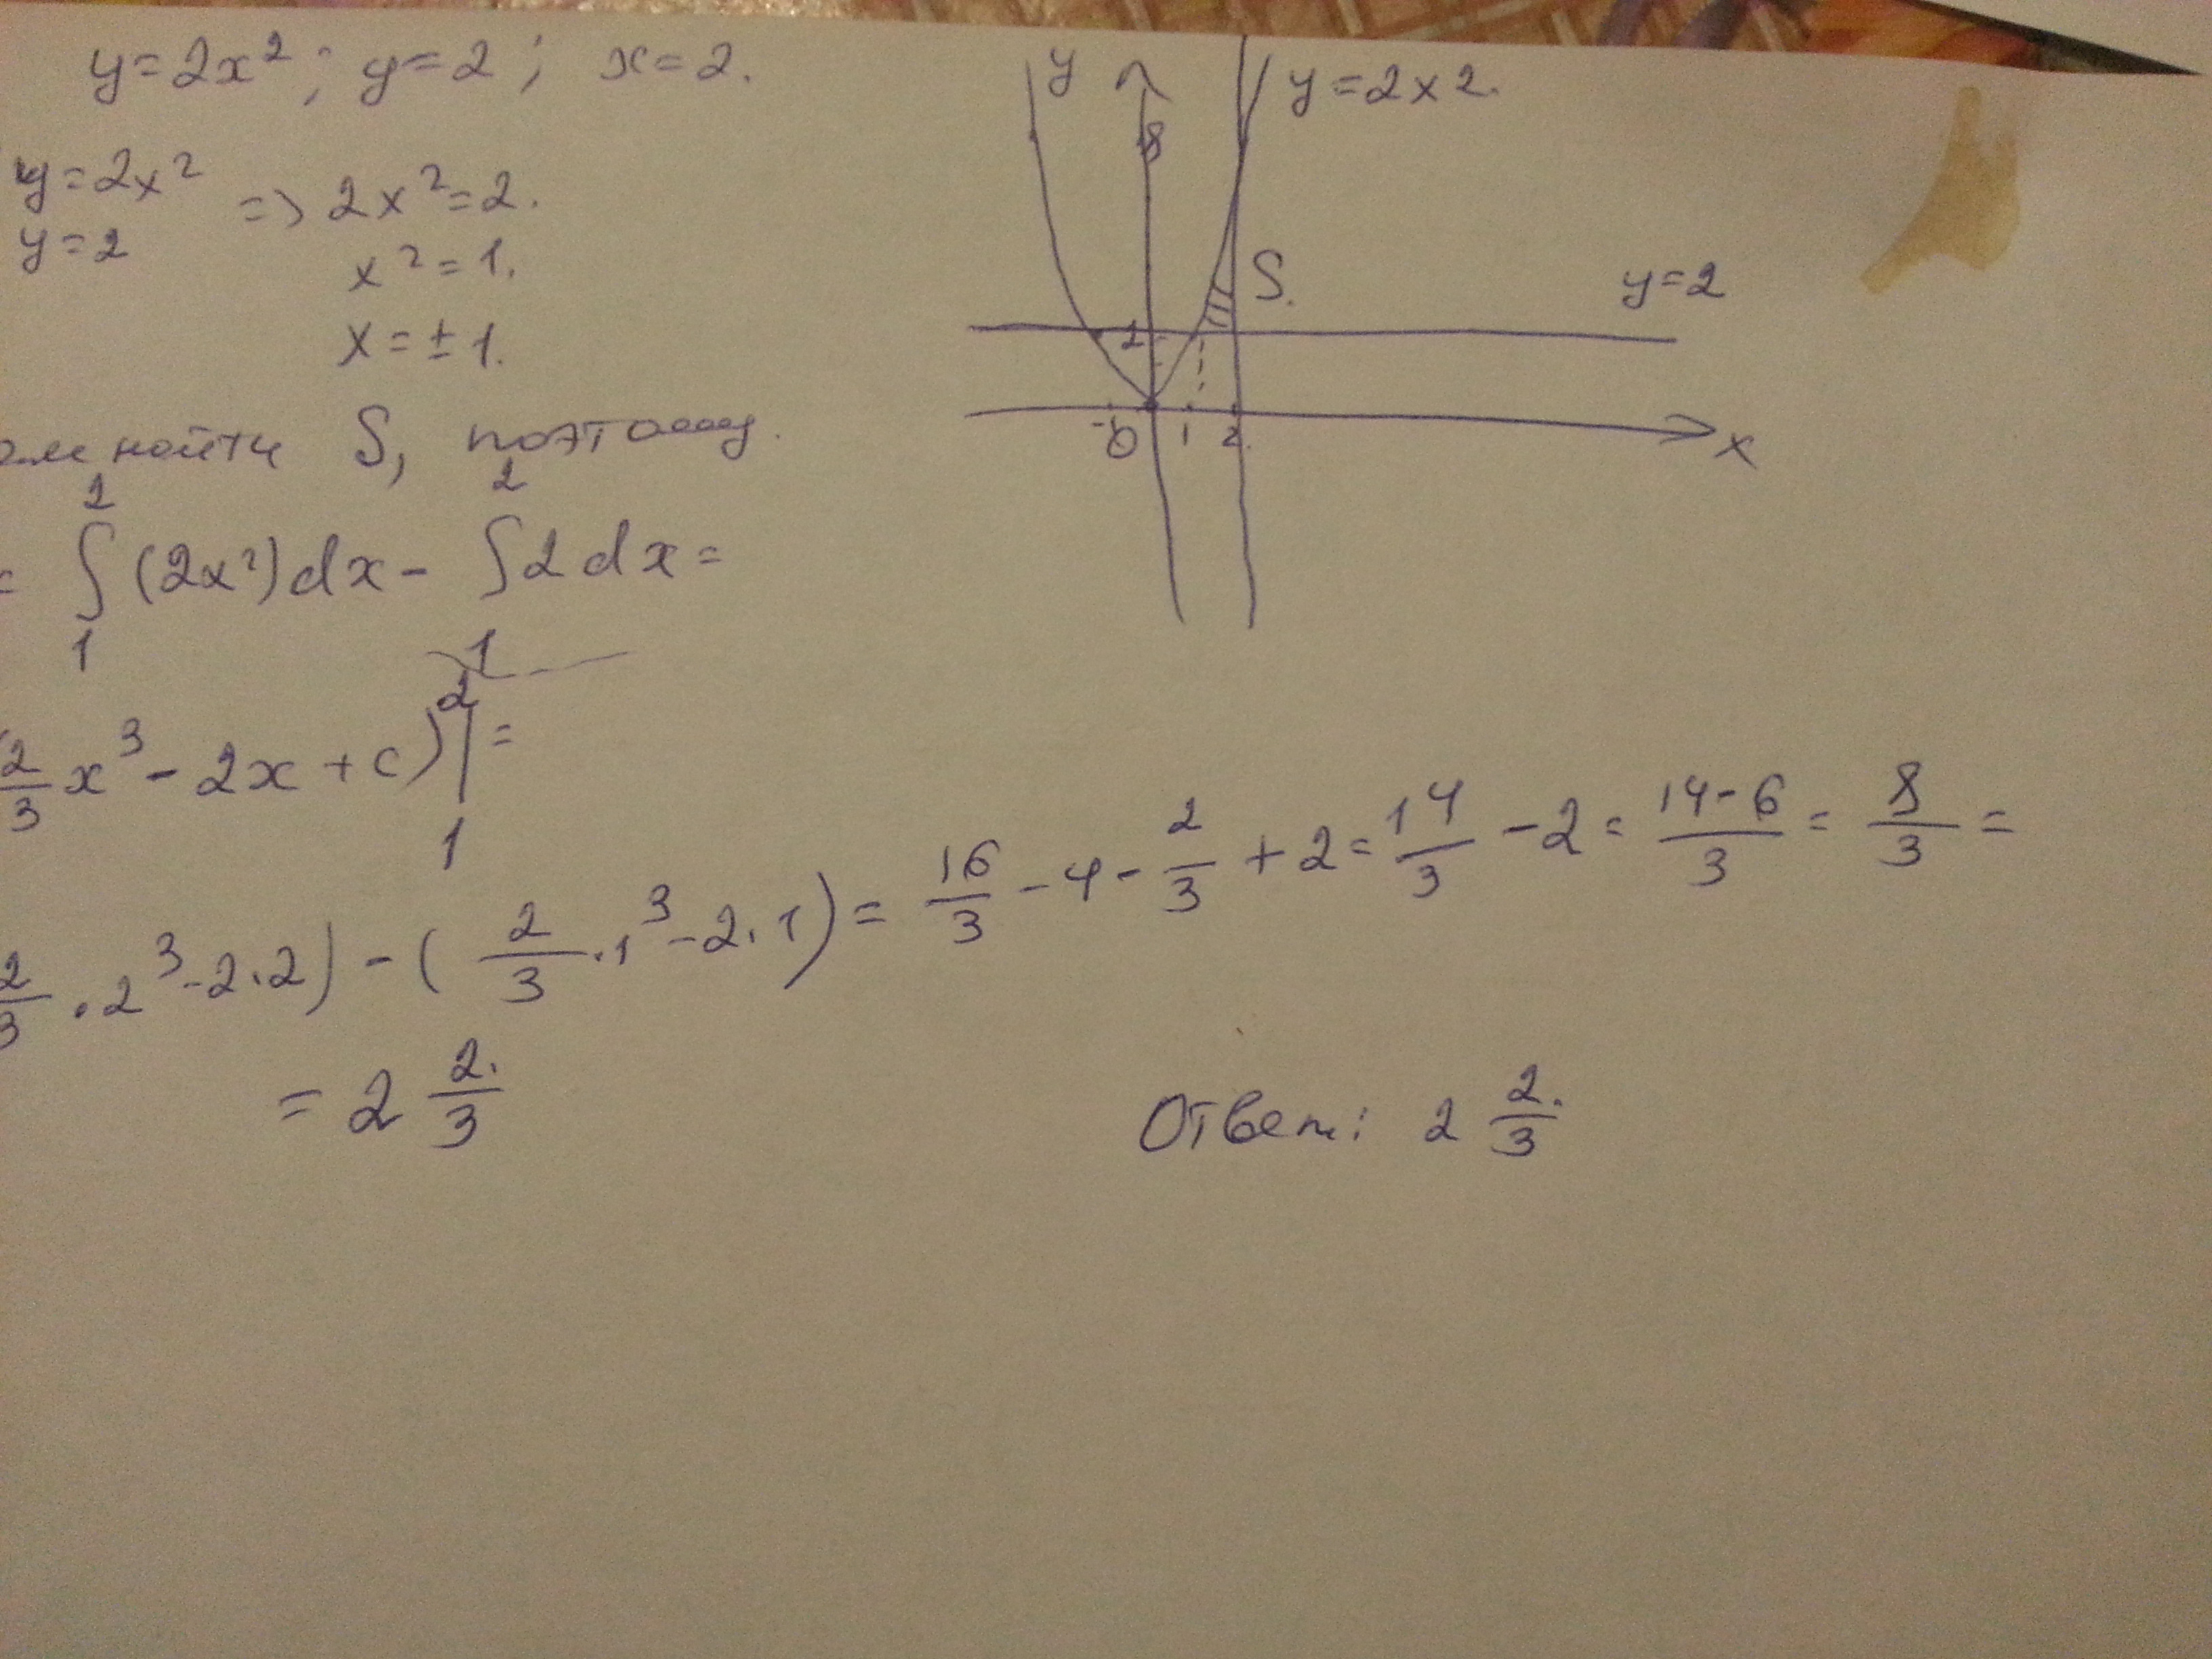 y=2x²; y=2; x=2.
y=2x² => 2x²=2.
y=2
x²=1.
x=±1.
найти S, поэтому
= ∫₁² (2x²)dx - ∫₁² 2dx =
2/3 x³ - 2x + c) |₁² =
2/3 · 2³ - 2·2) - (2/3 · 1³ - 2·1) = 16/3 - 4 - 2/3 + 2 = 14/3 - 2 = 14-6/3 = 8/3 =
= 2 2/3.
Ответ: 2 2/3.
y
8
y=2x2.
S.
y=2
2
0 1 2
x